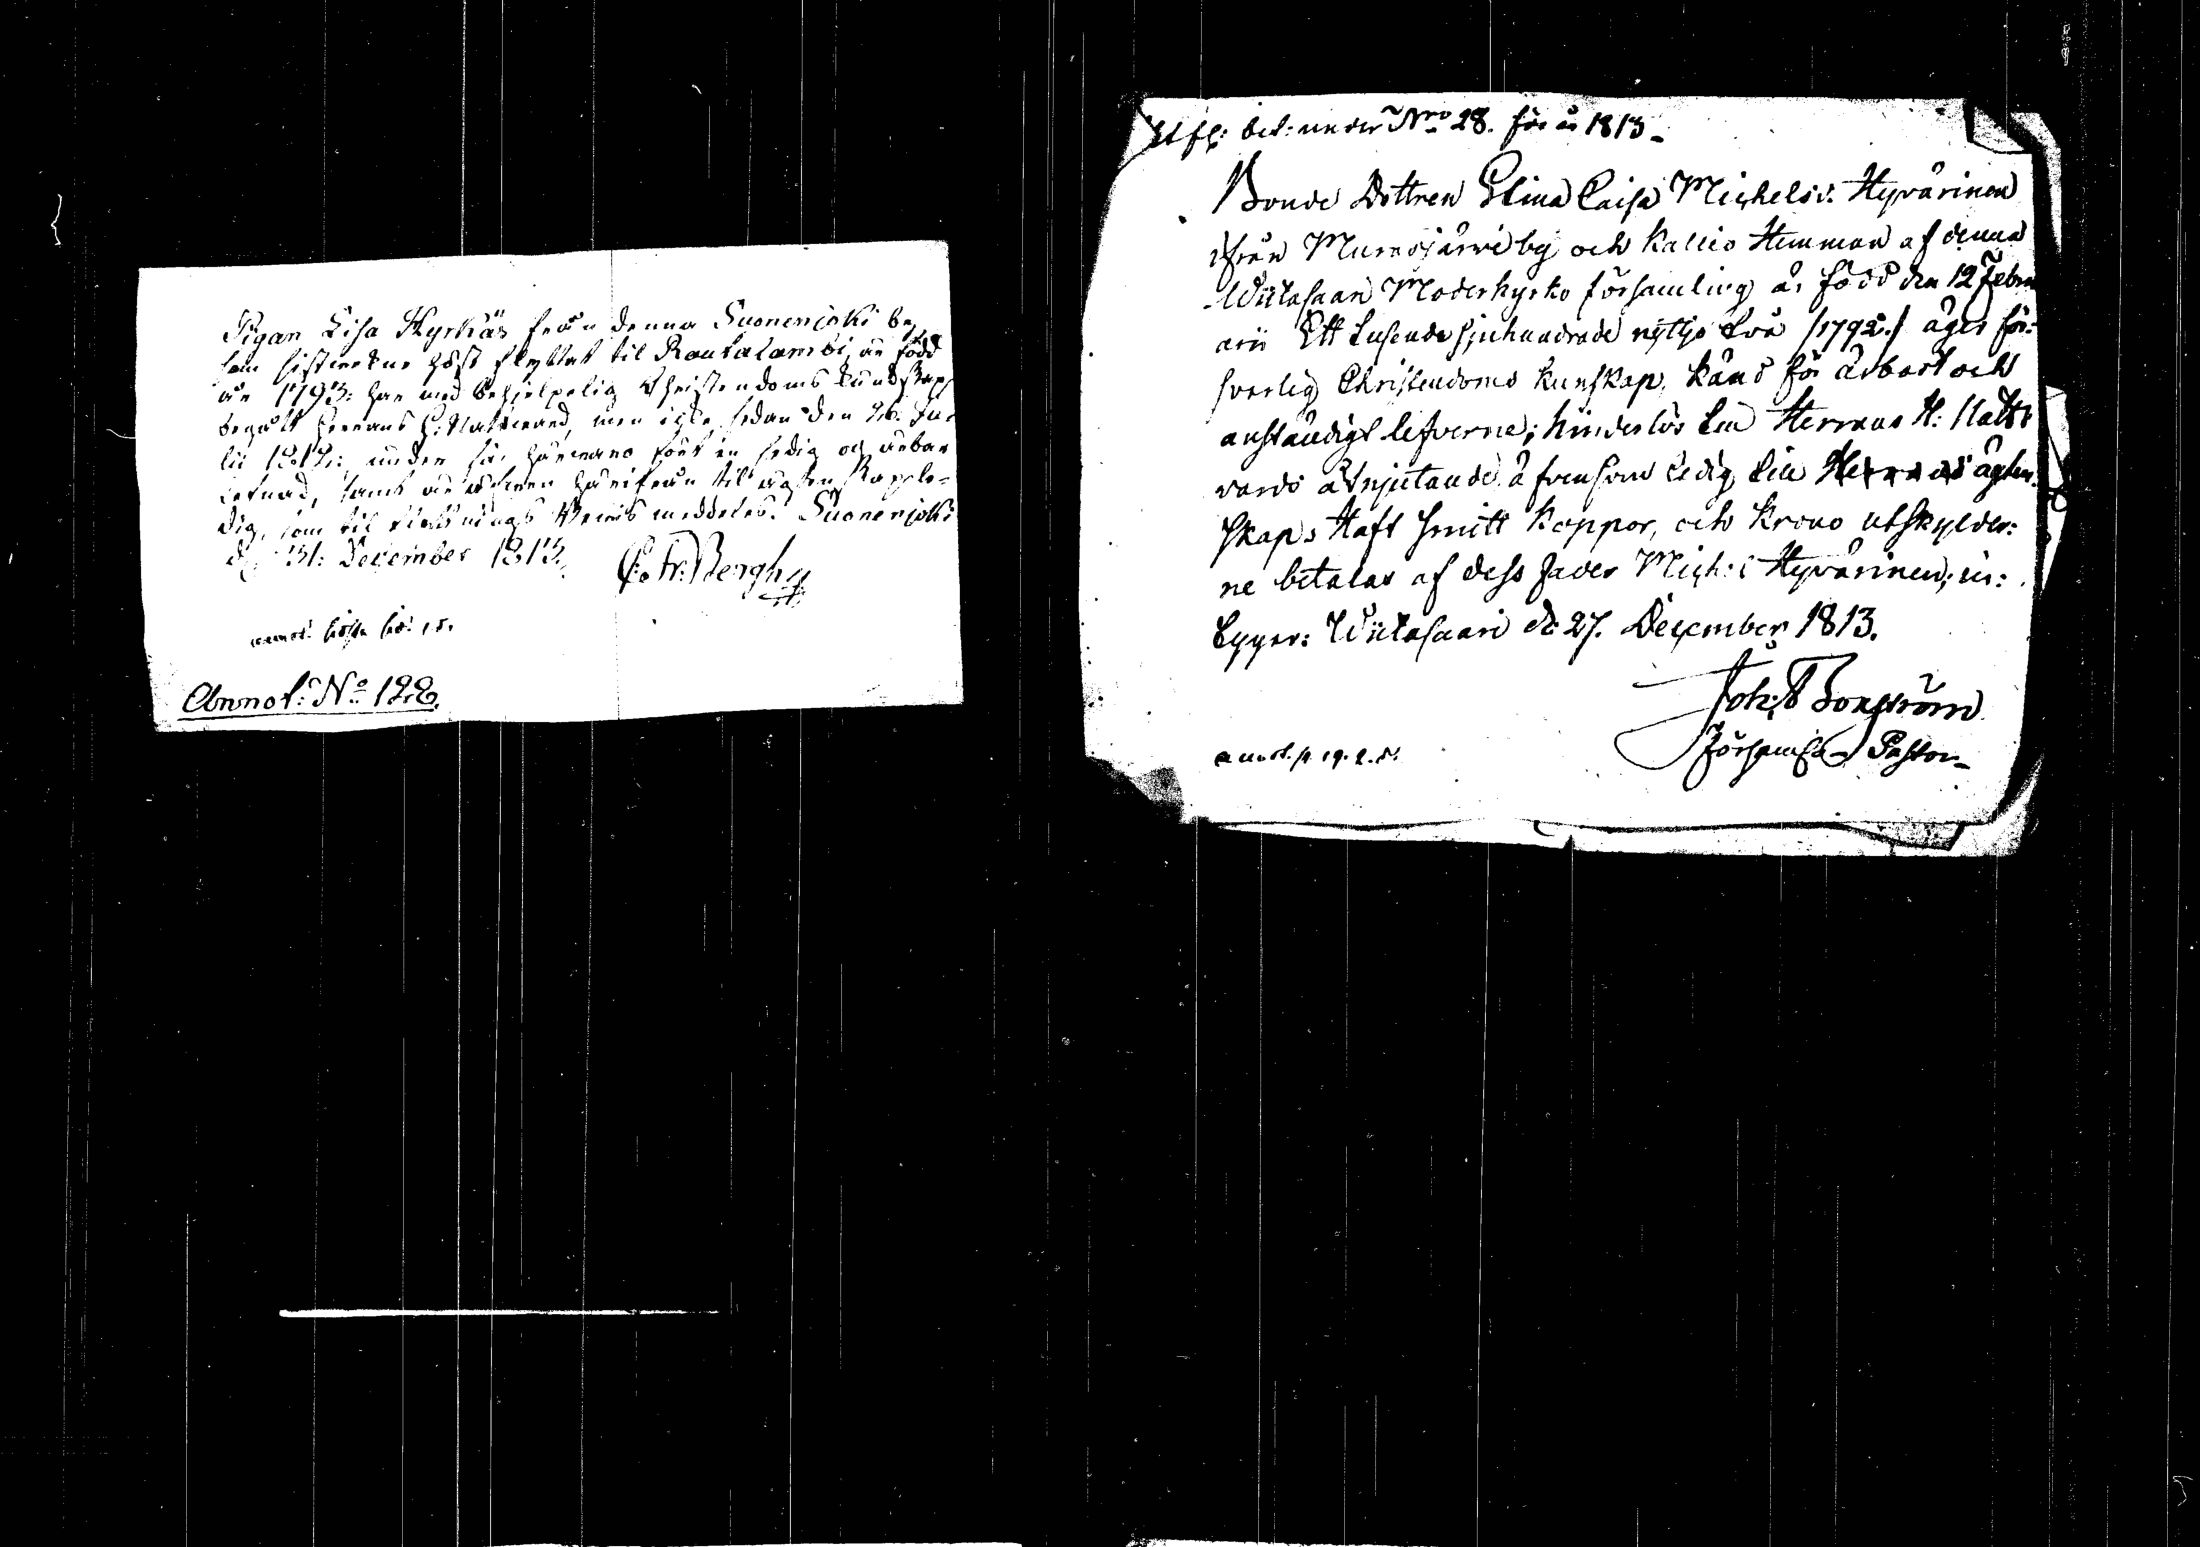 Pigan Lisa Hyrkäs från denna Suonenjoki by,
som sistwekne höst flyttat til Rautalambi, är född
år 1793: har med behjelpelig Christendoms kundskap
begått Herrans H: Nattward, men icke sedan den 26. Ju-
lii 1812: under sin härvaro fört en sedig og ärbar
lefnad, samt är härifrån til ägtenskap le-
dig, som til flyttnings Bewis meddeles. Suonenjoki
d. 31: December 1813.
C: Fr: Bergh
annot:
Annot: No 122.
Utfl: bet: under Nro 28. för år 1813-
Bonde Dottren Stina Caisa Michelsd: Hyvärinen
ifrån Muurasjärvi by och Kallio Hemman af denna
Wiitasaari Moderkyrko församling är född den 12 Febru
arii Ett tusende sjuhundrade nyttjo två /1792./ äger för-
svarlig Christendoms kunskap, känd för ärbart och
anständigt lefverne; hinderlös till Herrans H: Natt
vards åtnjutande, äfvensom ledig till ägten
skap. Haft smitt koppor, och Krono utskylder:
ne betalas af dess fader Mich: Hyvärinen; in:
tygar: Wiitasaari d: 27. December 1813.
Joh: Forsström
Församl: Pastor
annot. p. 19.